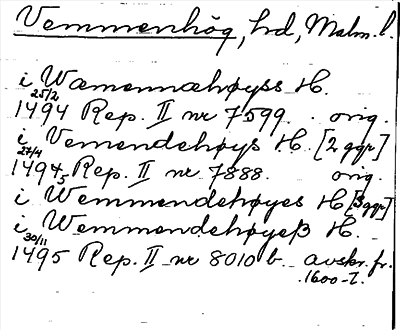 Vemmenhög, hd, Malm. l.
i Wæmennæhøyss H.
25/2
1494 Rep. II nr 7599. orig.
i Vemendehøys H. [2 ggr]
27/4
1495 Rep. II nr 7888. orig.
i Wemmendehøyes H [3 ggr]
i Wemmendehøyeß H.
30/11
1495 Rep. II nr 8010 b. avskr. fr.
1600-t.